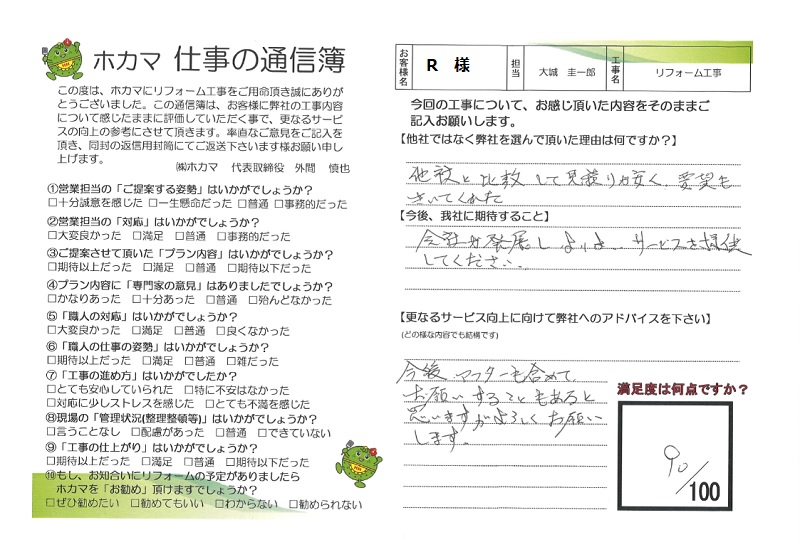 ホカマ 仕事の通信簿
この度は、ホカマにリフォーム工事をご用命頂き誠にありが
とうございました。この通信簿は、お客様に弊社の工事内容
について感じたままに評価していただく事で、更なるサービ
スの向上の参考にさせて頂きます。率直なご意見をご記入を
頂き、同封の返信用封筒にてご返送下さいます様お願い申し
上げます。
㈱ホカマ 代表取締役 外間 慎也
①営業担当の「ご提案する姿勢」はいかがでしょうか?
□十分誠意を感じた □一生懸命だった □普通 □事務的だった
②営業担当の「対応」はいかがでしょうか?
□大変良かった □満足 □普通 □事務的だった
③ご提案させて頂いた「プラン内容」はいかがでしょうか?
□期待以上だった □満足 □普通 □期待以下だった
④プラン内容に「専門家の意見」はありましたでしょうか?
□かなりあった □十分あった □普通 □殆んどなかった
⑤「職人の対応」はいかがでしょうか?
□大変良かった □満足 □普通 □良くなかった
⑥「職人の仕事の姿勢」はいかがでしょうか?
□期待以上だった □満足 □普通 □雑だった
⑦「工事の進め方」はいかがでしたか?
□とても安心していられた □特に不安はなかった
□対応に少しストレスを感じた □とても不満を感じた
⑧現場の「管理状況(整理整頓等)」はいかがでしょうか?
□言うことなし □配慮があった □普通 □できていない
⑨「工事の仕上がり」はいかがでしょうか?
□期待以上だった □満足 □普通 □期待以下だった
⑩もし、お知合いにリフォームの予定がありましたら
ホカマを「お勧め」頂けますでしょうか?
□ぜひ勧めたい □勧めてもいい □わからない □勧められない
お客様名 R 様 担当 大城 圭一郎 工事名 リフォーム工事
今回の工事について、お感じ頂いた内容をそのままご
記入お願いします。
【他社ではなく弊社を選んで頂いた理由は何ですか?】
他社と比較して見積りが安く、要望も
きいてくれた
【今後、我社に期待すること】
会社が発展しよりよいサービスを提供
してください。
【更なるサービス向上に向けて弊社へのアドバイスを下さい】
(どの様な内容でも結構です)
今後アフターも含めて、
お願いすることもあると
思いますがよろしくお願い
します。
満足度は何点ですか?
90/100